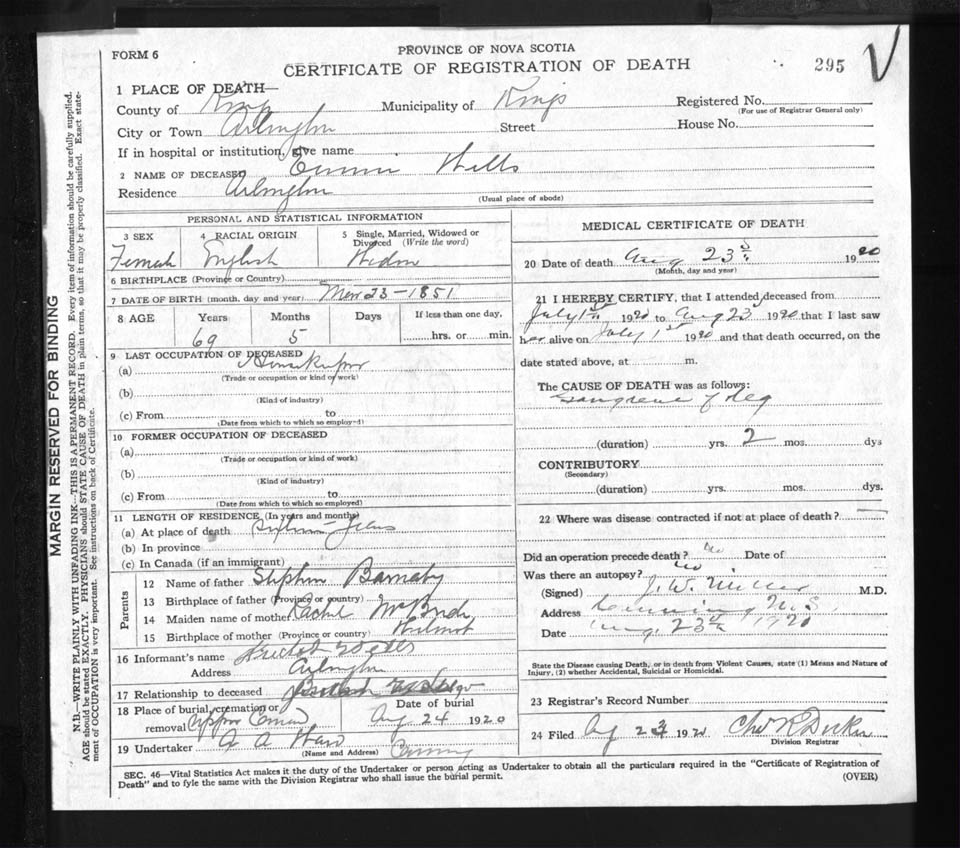 FORM 6
PROVINCE OF NOVA SCOTIA
CERTIFICATE OF REGISTRATION OF DEATH
295
1 PLACE OF DEATH—
County of Kings Municipality of Kings Registered No.
(For use of Registrar General only)
City or Town Arlington Street House No.
If in hospital or institution, give name
2 NAME OF DECEASED Emma Wells
Residence Arlington
(Usual place of abode)
PERSONAL AND STATISTICAL INFORMATION
3 SEX 4 RACIAL ORIGIN 5 Single, Married, Widowed or Divorced (Write the word)
Female English Widow
6 BIRTHPLACE (Province or Country)
7 DATE OF BIRTH (month, day and year) 23-1851
8 AGE Years Months Days If less than one day,
69 5 hrs. or min.
9 LAST OCCUPATION OF DECEASED
(a) Housekeeper
(Trade or occupation or kind of work)
(b)
(Kind of industry)
(c) From to
(Date from which to which so employed)
10 FORMER OCCUPATION OF DECEASED
(a)
(Trade or occupation or kind of work)
(b)
(Kind of industry)
(c) From to
(Date from which to which so employed)
11 LENGTH OF RESIDENCE (In years and months)
(a) At place of death years
(b) In province
(c) In Canada (if an immigrant)
Parents
12 Name of father Stephen Barnaby
13 Birthplace of father (Province or country)
14 Maiden name of mother Rachel McBride
15 Birthplace of mother (Province or country) Wilmot
16 Informant's name Wells
Address Arlington
17 Relationship to deceased
18 Place of burial, cremation or removal Upper Date of burial Aug 24 1920
19 Undertaker
(Name and Address)
MEDICAL CERTIFICATE OF DEATH
20 Date of death Aug 23 1920
(Month, day and year)
21 I HEREBY CERTIFY, that I attended deceased from
July 1st 1920 to Aug 23 1920 that I last saw
her alive on July 1st 1920 and that death occurred, on the
date stated above, at m.
The CAUSE OF DEATH was as follows:
Gangrene of leg
(duration) yrs. 2 mos. dys
CONTRIBUTORY
(Secondary)
(duration) yrs. mos. dys.
22 Where was disease contracted if not at place of death? —
Did an operation precede death? no Date of
Was there an autopsy? no
(Signed) J. W. Miller M.D.
Address Canning N.S.
Date Aug. 23rd 1920
State the Disease causing Death, or in death from Violent Causes, state (1) Means and Nature of
Injury, (2) whether Accidental, Suicidal or Homicidal.
23 Registrar's Record Number
24 Filed 23 192
Division Registrar
SEC. 46—Vital Statistics Act makes it the duty of the Undertaker or person acting as Undertaker to obtain all the particulars required in the "Certificate of Registration of
Death" and to fyle the same with the Division Registrar who shall issue the burial permit.
(OVER)
MARGIN RESERVED FOR BINDING
N.B.—WRITE PLAINLY, WITH UNFADING INK—THIS IS A PERMANENT RECORD. Every item of information should be carefully supplied.
AGE should be stated EXACTLY. PHYSICIANS should STATE CAUSE OF DEATH in plain terms, so that it may be properly classified. Exact state-
ment of OCCUPATION is very important. See instructions on back of Certificate.